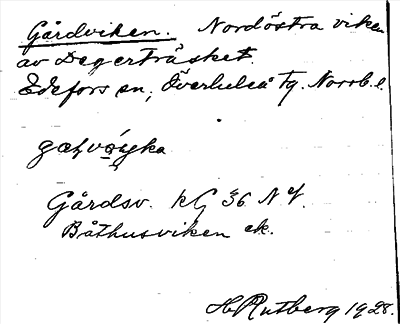 Gårdviken. Nordöstra viken
av Degerträsket.
Edefors sn, Överluleå tg. Norrb. l.
Gårdsv. kG 36 NV.
Båthusviken ek.
H Rutberg 1928.